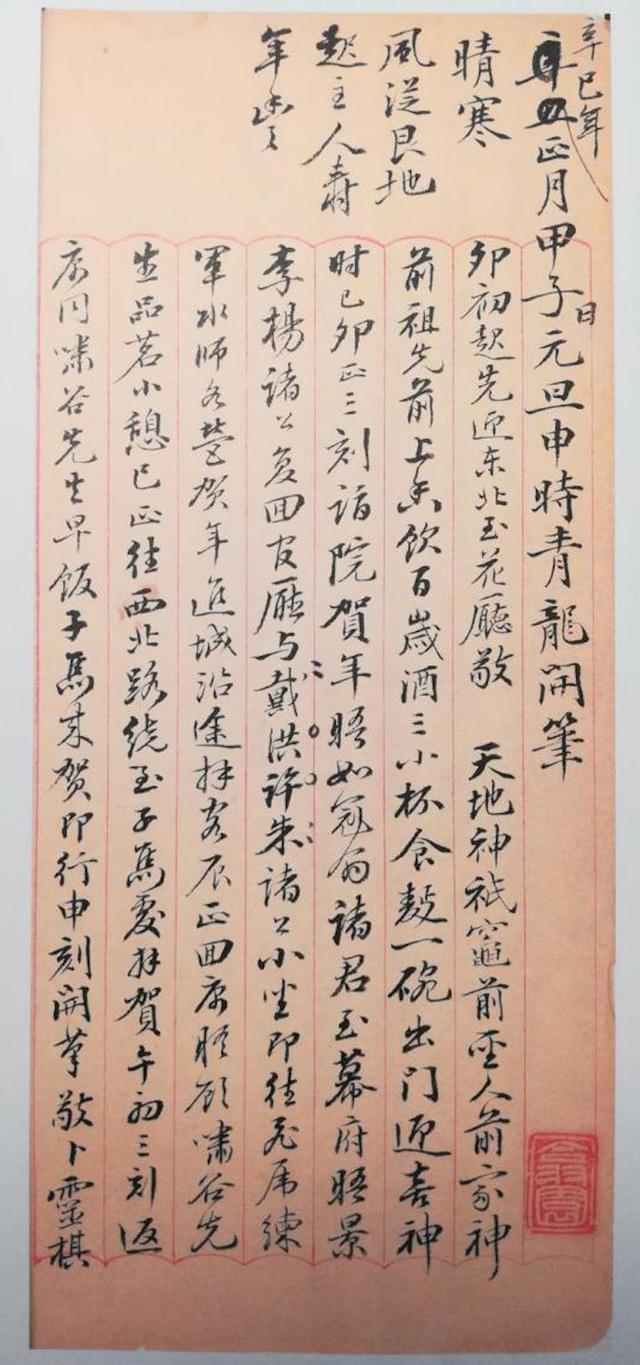 辛巳年
正月甲子日元旦申時青龍開筆
晴寒
風從艮地
起主人壽
年豊
卯初起先迎东北至花廳敬 天地神祇竈前聖人前家神
前祖先前上香飲百歲酒三小杯食麪一碗出门迎喜神
时已卯正三刻詣院賀年晤如冠翁諸君至幕府晤景
李楊诸公复回官廳与戴洪许朱诸公小坐即往飛虎練
軍水师各营贺年進城沿途拜客辰正回寓晤顾嘯谷先
生品茗小憩巳正往西北路绕至子馬處拜賀午初三刻返
寓同嘯谷先生早饭子馬来贺即行申刻開筆敬卜靈棋